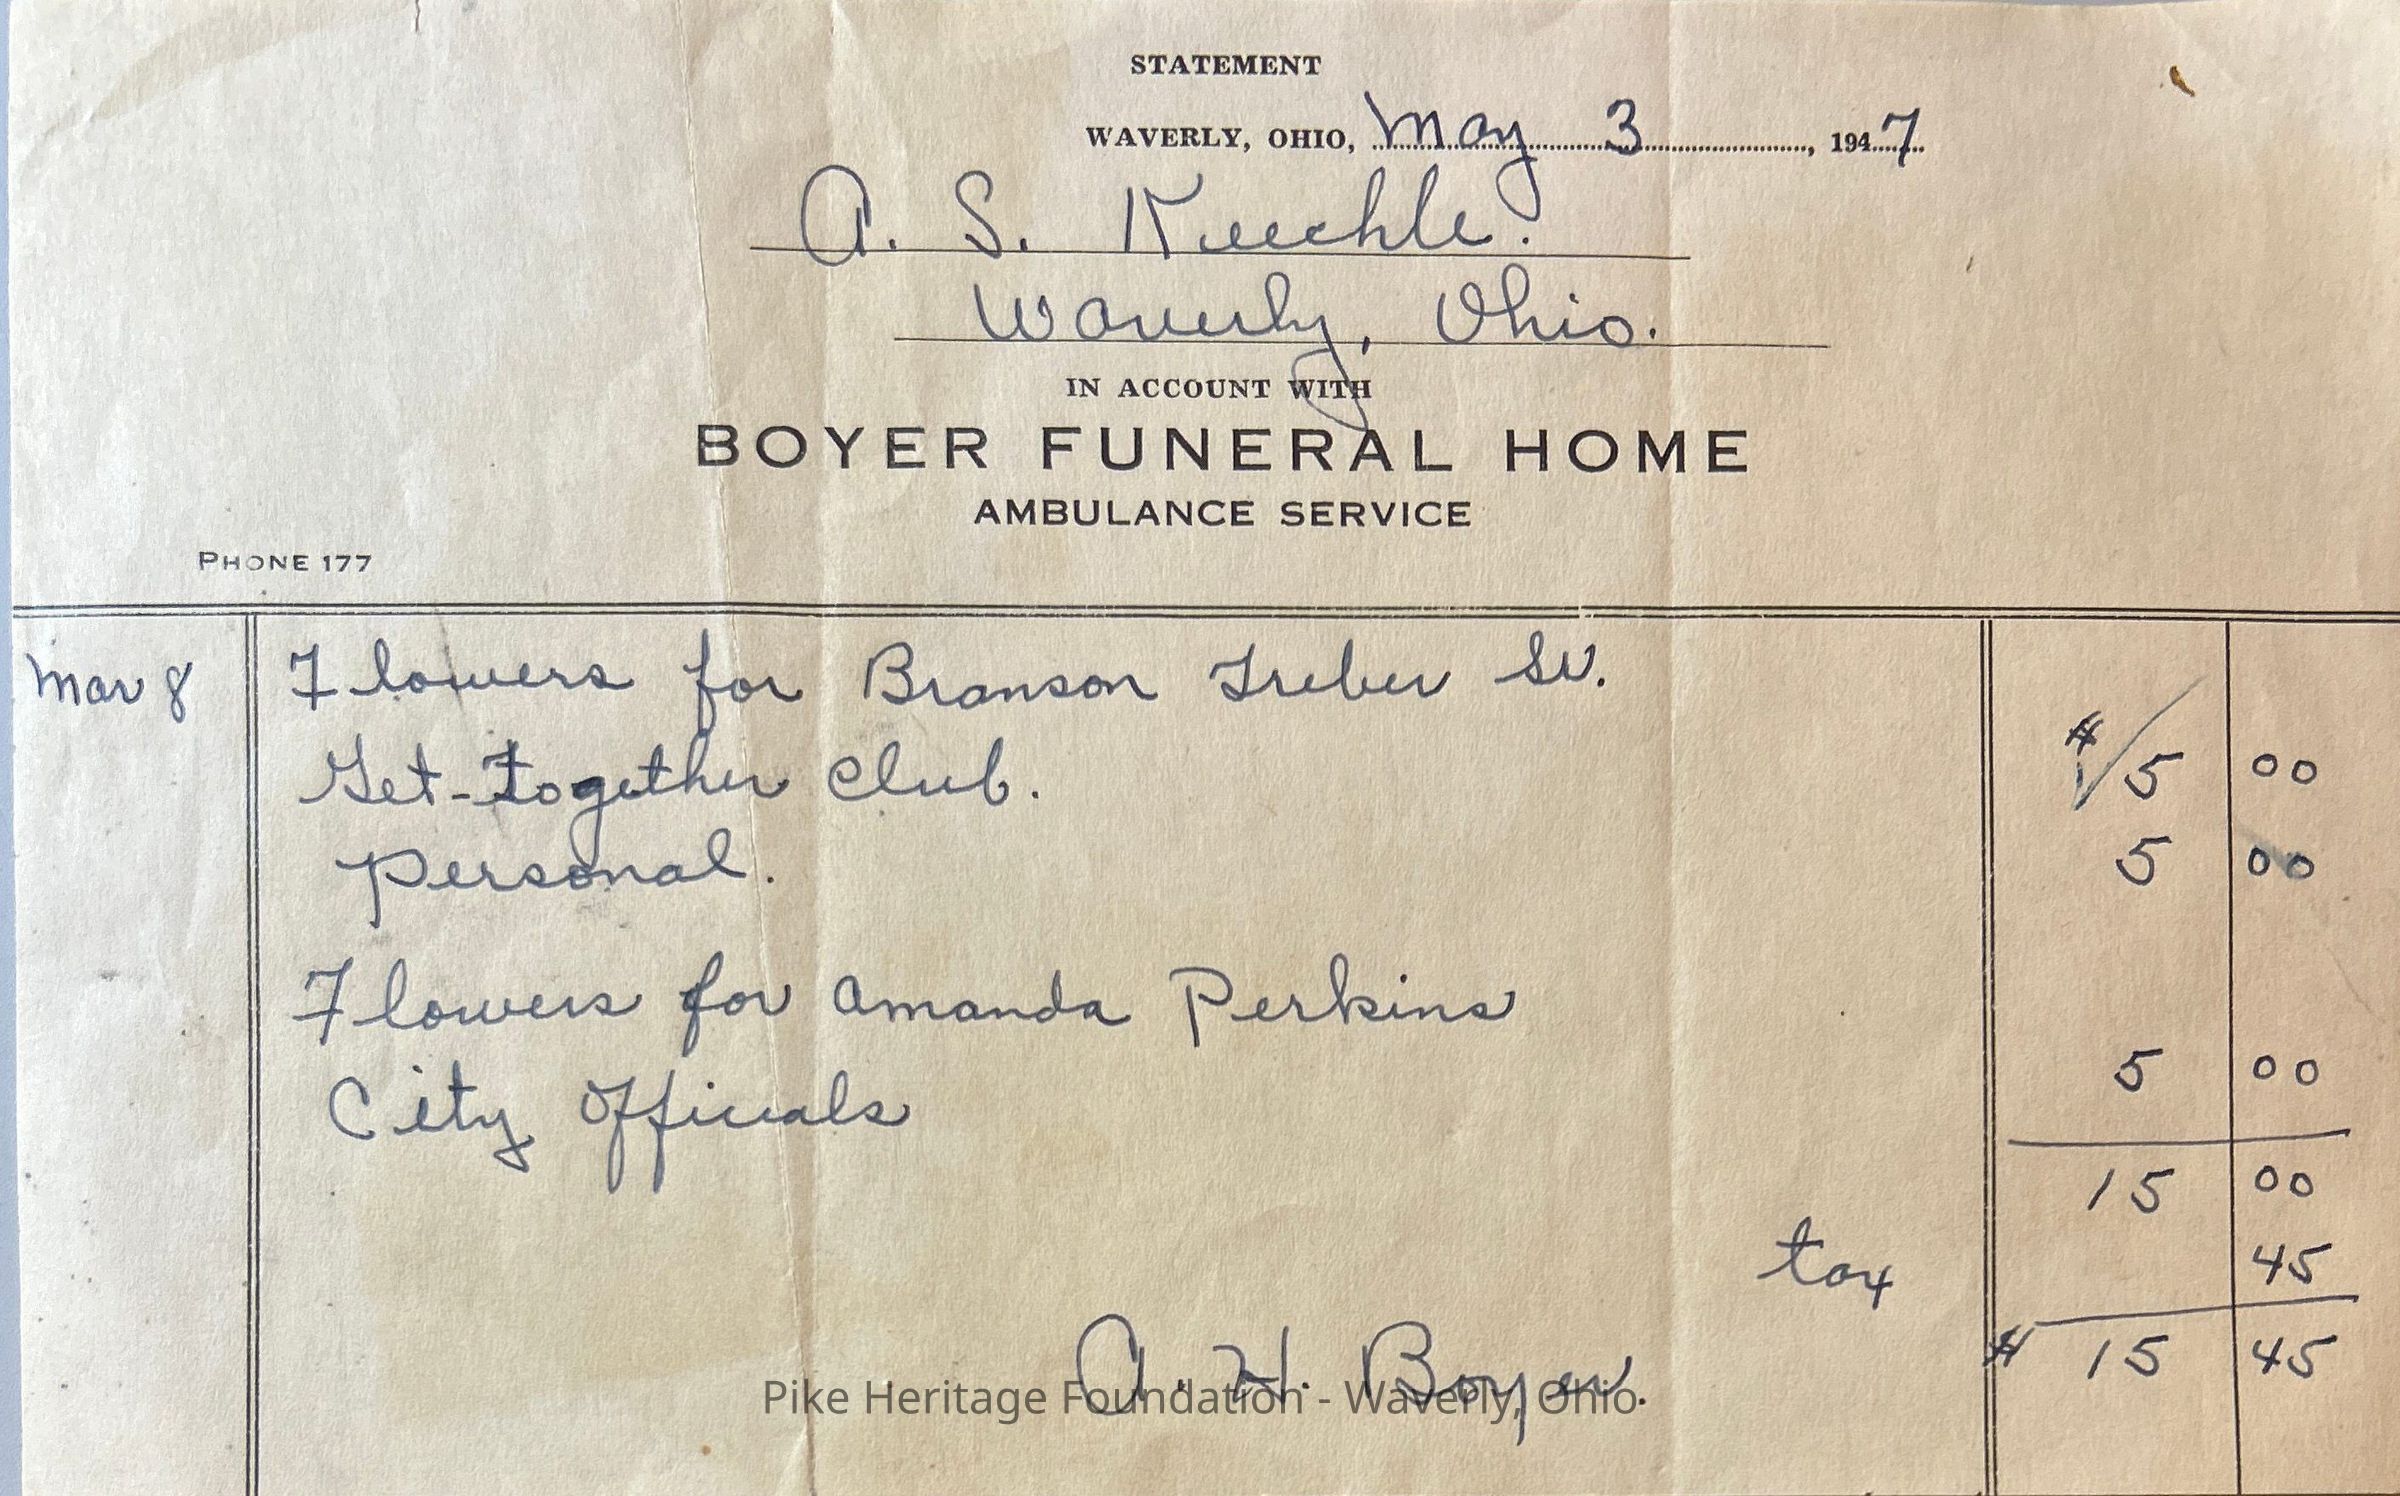 STATEMENT
WAVERLY, OHIO, May 3, 1947
A. S. Keechle.
Waverly, Ohio.
IN ACCOUNT WITH
BOYER FUNERAL HOME
AMBULANCE SERVICE
PHONE 177
Mar 8 Flowers for Branson Treber Sr.
Get-Together Club. $ 5 00
Personal. 5 00
Flowers for Amanda Perkins
City Officials 5 00
15 00
tax 45
$ 15 45
A. H. Boyer.
Pike Heritage Foundation - Waverly, Ohio